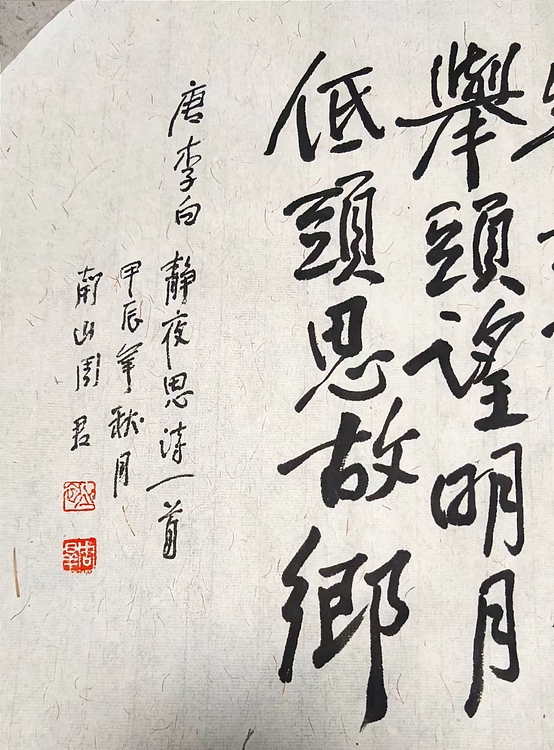 舉頭望明月
低頭思故鄉
唐李白靜夜思詩一首
甲辰年秋月
南山周君